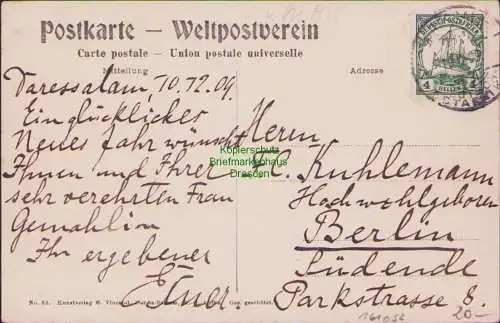 Postkarte — Weltpostverein
Carte postale — Union postale universelle
Mitteilung
Adresse
DEUTSCH-OSTAFRIKA
4 HELLER 4
Daressalam, 10.12.09.
Ein glücklicher
Neues Jahr wünscht
Ihnen und Ihrer
sehr verehrten Frau
Gemahlin
Ihr ergebener
Herrn
Kuhlemann
Hochwohlgeboren
Berlin
Südende
Parkstrasse 8.
Kopierschutz
Briefmarkenhaus
Dresden
Kunstverlag
Ges. geschützt.
20—